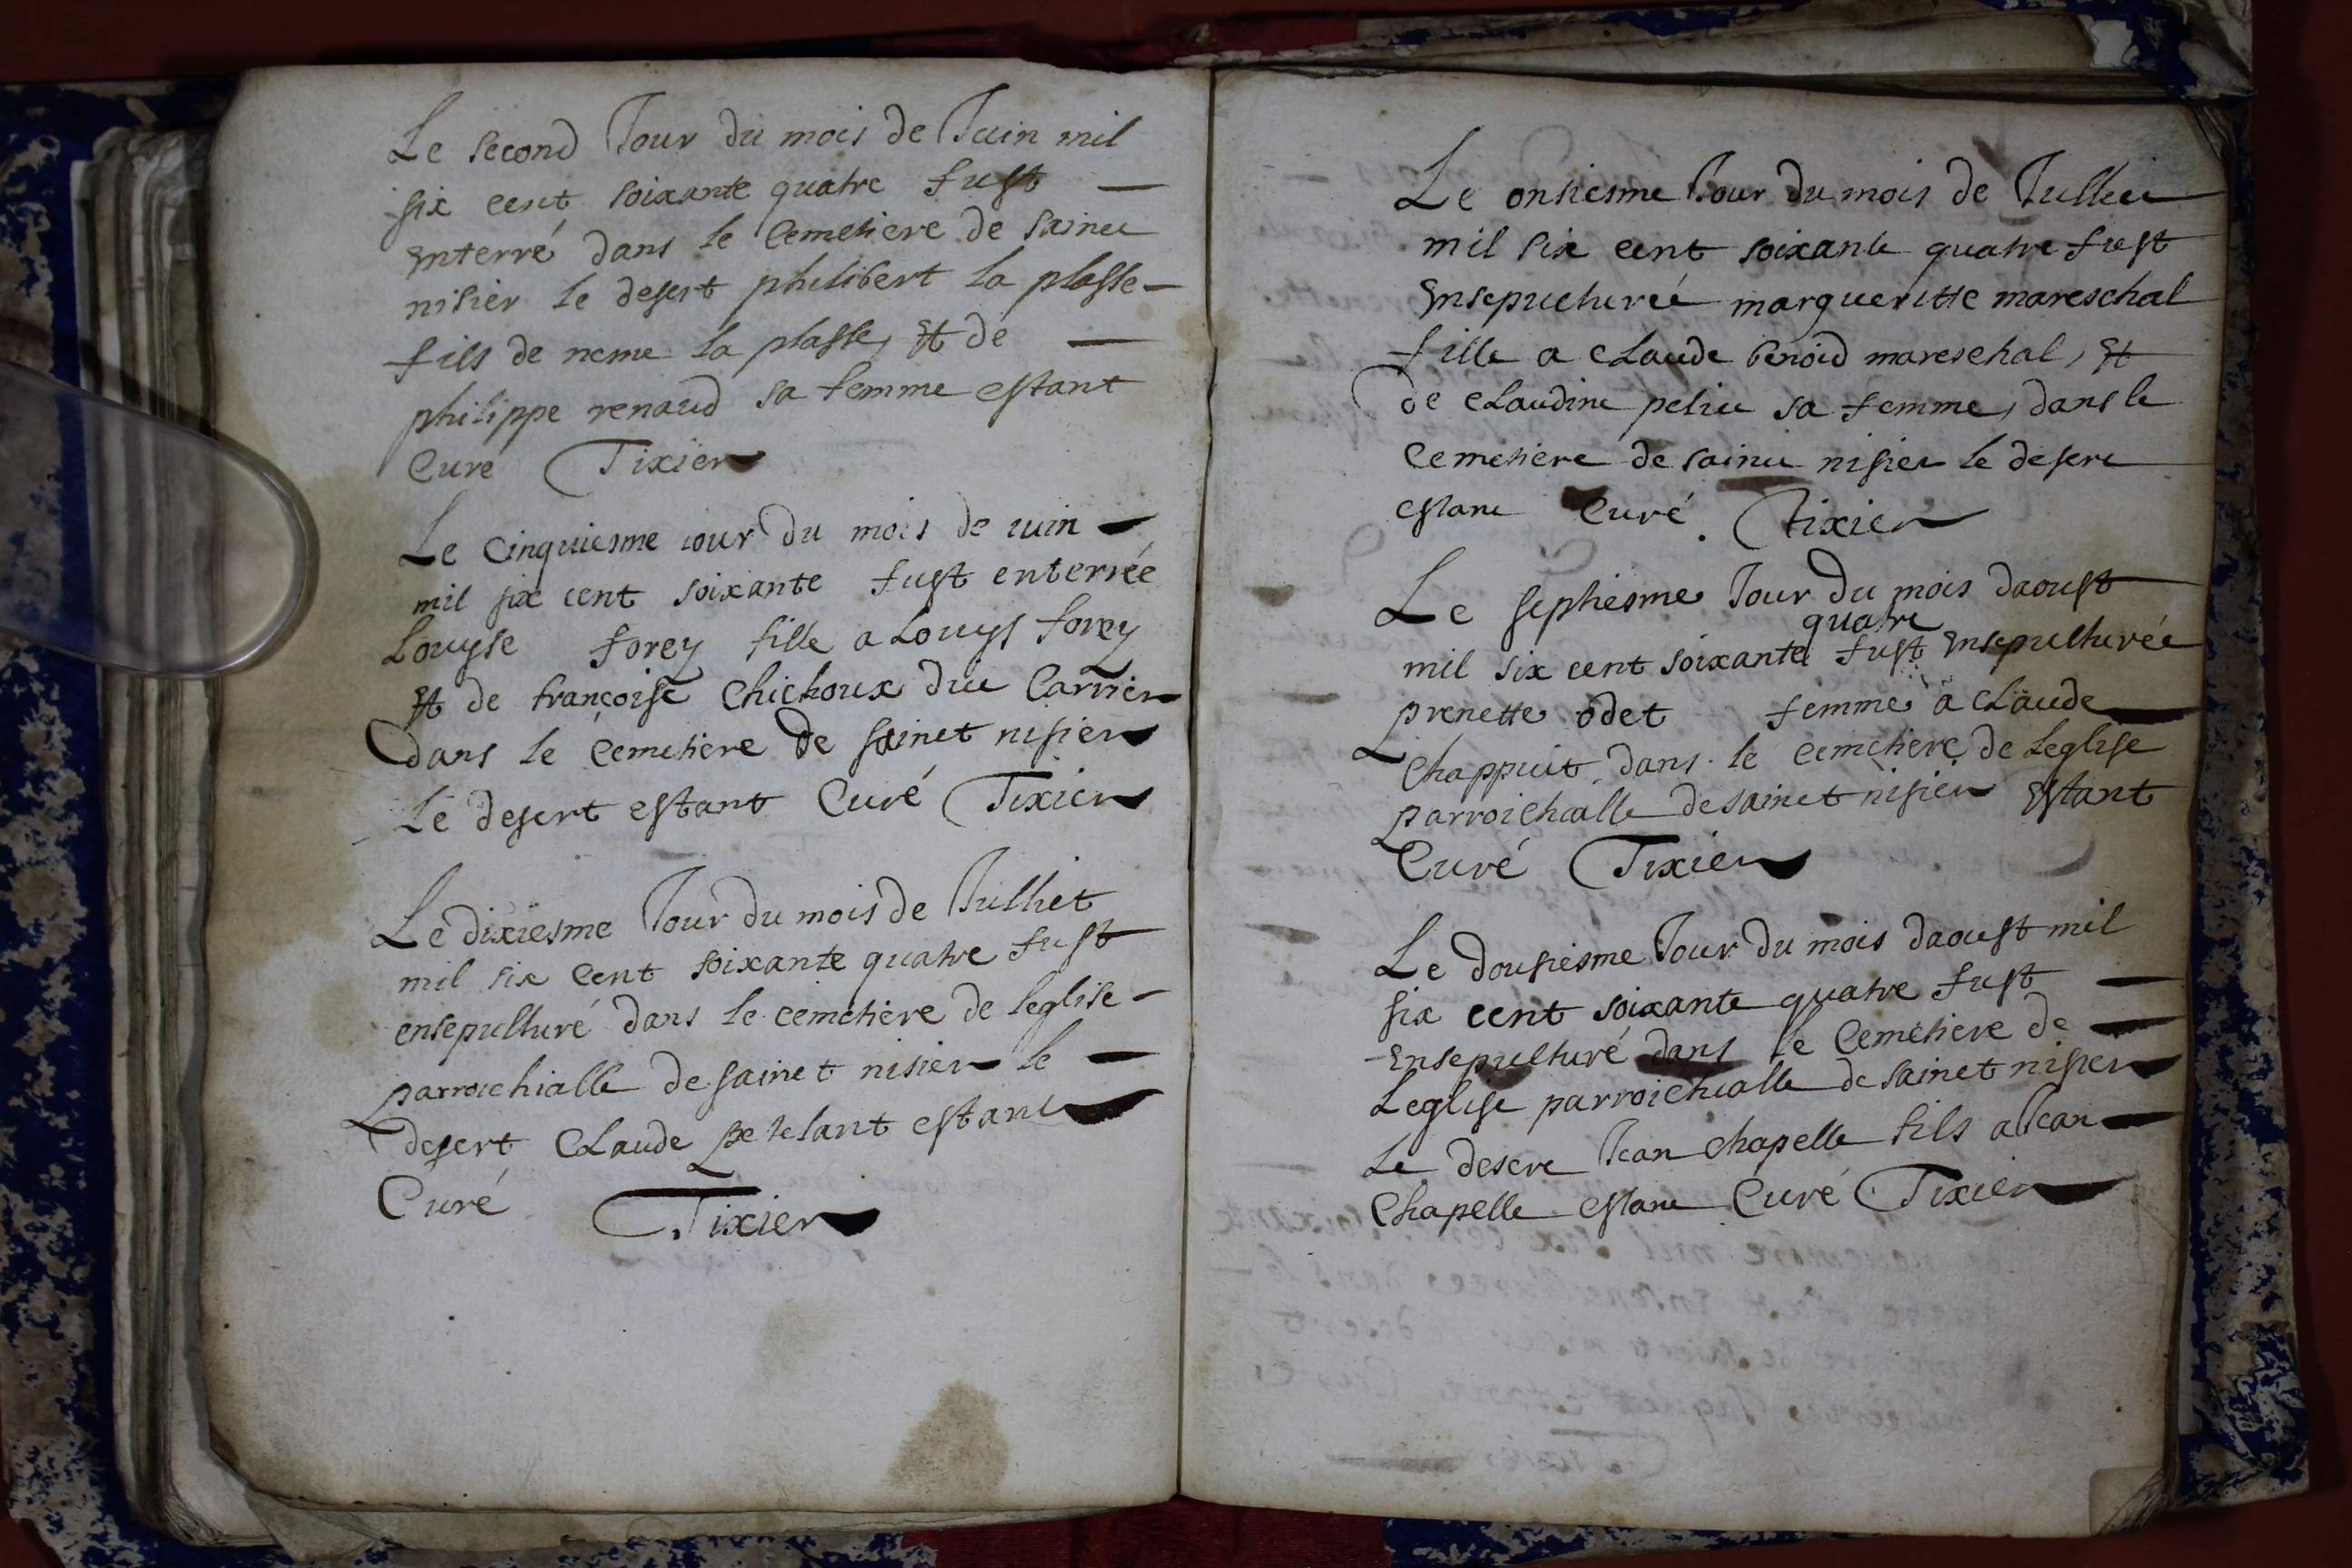 Le second Jour du mois de Juin mil
six cent soixante quatre fust
Enterré dans le Cemetiere de sainct
nisier le desert philibert la plasse
fils de neme la plasse, Et de
philippe renaud sa femme estant
Curé Tixier
Le Cinquiesme iour du mois de iuin
mil six cent soixante fust enterrée
Louyse forey fille a Louys forey
Et de françoise Chichoux duc Carrier
dans le Cemetiere de sainct nisier
Le desert estant Curé Tixier
Le dixiesme Jour du mois de Julliet
mil six cent soixante quatre fust
ensepulturé dans le cemetiere de leglise
parroichialle de sainct nisier le
desert Claude petelant estant
Curé Tixier
Le onsiesme Jour du mois de Julliet
mil six cent soixante quatre fust
Ensepulturée margueritte mareschal
fille a Claude benoid mareschal, Et
de Claudine peliee sa femme, dans le
Cemetiere de sainct nisier le desert
estant Curé. Tixier
Le septiesme Jour du mois daoust
quatre
mil six cent soixante fust Ensepulturée
prenette odet femme a Claude
Chappuit dans le cemetiere de Leglise
parroichialle de sainct nisier Estant
Curé Tixier
Le dousiesme Jour du mois daoust mil
six cent soixante quatre fust
Ensepulturé dans le Cemetiere de
Leglise parroichialle de sainct nisier
Le desert Jean Chapelle fils a Jean
Chapelle estant Curé Tixier